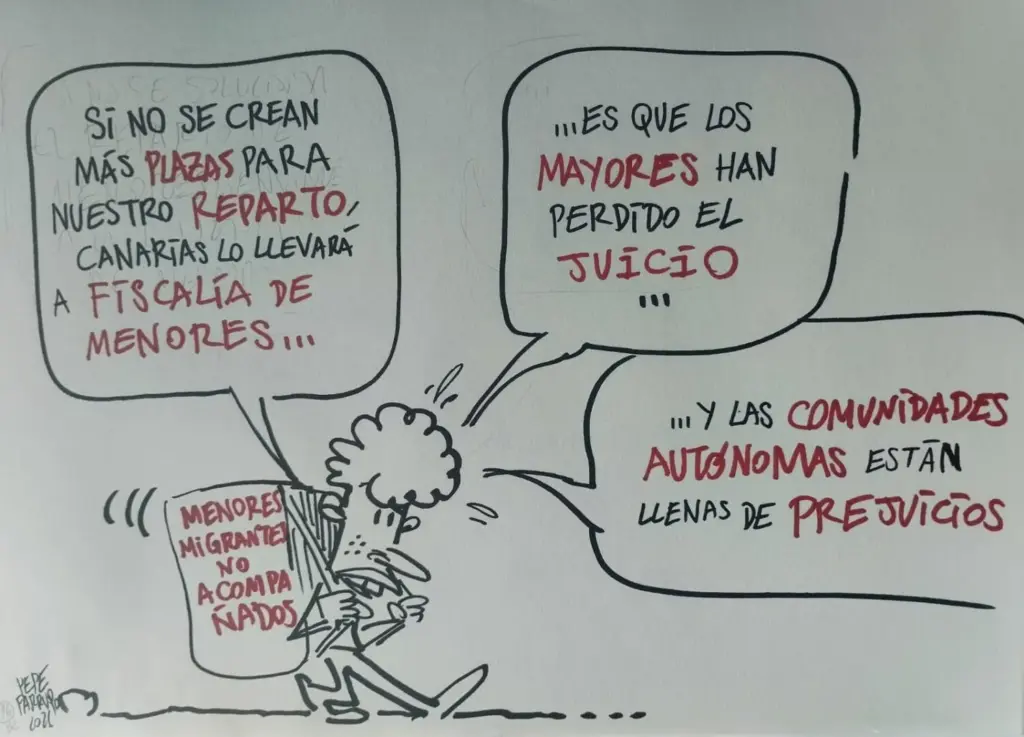 Si NO SE CREAN
MÁS PLAZAS PARA
NUESTRO REPARTO,
CANARIAS LO LLEVARÁ
A FISCALÍA DE
MENORES...
...ES QUE LOS
MAYORES HAN
PERDIDO EL
JUICIO
...
...Y LAS COMUNIDADES
AUTÓNOMAS ESTÁN
LLENAS DE PREJUICIOS
MENORES
MIGRANTES
NO
ACOMPA
ÑADOS
PEPE